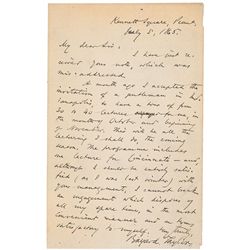 Kennett Square, Penn'a.
July 5, 1865.
My dear Sir:
I have just re-
ceived your note, which was
mis-addressed.
A month ago I accepted
the invitation of a gentleman in
to have a tour of from
30 to 40 lectures, in
the months of October and
of November. This will be all the
lecturing I shall do the coming
season. The programme includes
one lecture for Cincinnati — and
although I should be entirely satis-
fied (as I was last winter) with
your management, I cannot
an engagement which disposes of
all my spare time, in the most
convenient manner and on terms
satisfactory to myself.
Bayard Taylor.